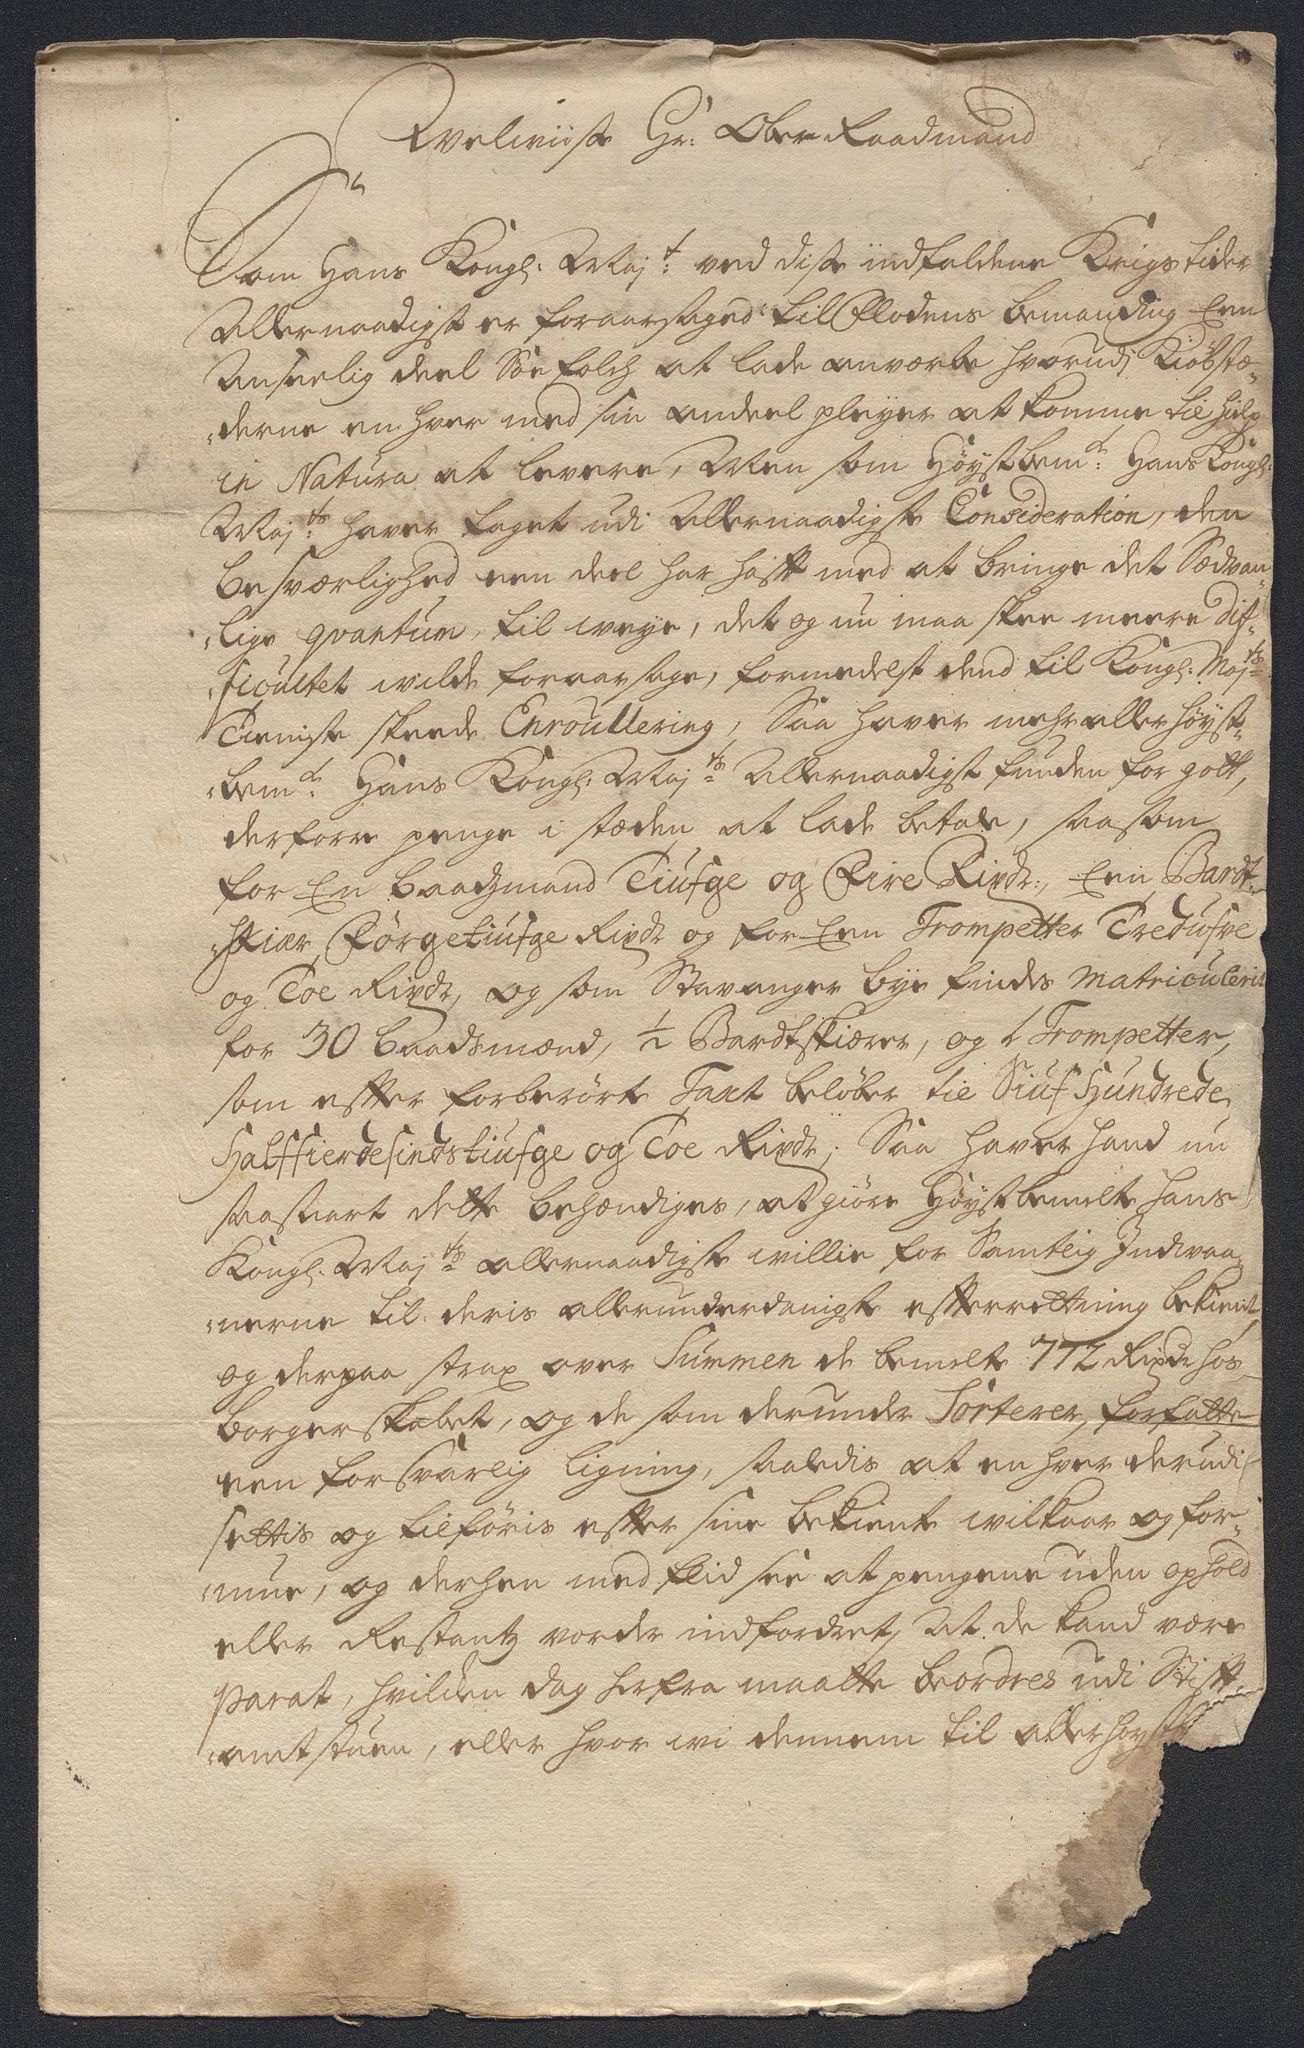 Welwiise Hr: Ober Raadmand
Som Hans Kongl: Maj.t: ved disse indfaldene Krigs tider
Allernaadigst er foraarsaged til Flodens bemanding Een
Anseelig deel Söe folch at lade anværbe hvorudj Kiöbstæ-
derne en hver med sin andeel pleyer at komme til hielp
in Natura at levere, Men som Höystbem.te: Hans Kongl:
Maj.ts: haver taget udi Allernaadigste Consideration, den
besværlighed een deel har hafft med at bringe det Sædvan-
lige qvantum til weye, det og nu maa skee meere dif-
ficultet wilde foraarsage, formedelst dend til Kongl: Maj.ts
Tieniste skeede Enroullering, Saa haver mehrallerhöyst-
bem.te: Hans Kongl: Maj.ts Allernaadigst funden for gott,
derforre penge i stæden at lade betale, saasom
for En baadzmand Tiufge og Fire Rixdr:, Een Bardt-
skiær Förgetiufge Rixdr og for Een Trompetter Tredufve
og Toe Rixdr, og som Stavanger bye findes Matriculerit
for 30 baadsmænd, 1/2 Bardtskiærer, og 1 Trompetter,
som effter forberörte Taxt belöber til Siuf Hundrede
Halffierdesindstiufge og Toe Rixdr; Saa haver hand nu
saasnart dette behændiges, at giöre Höystbemelte Hans
Kongl: Maj.ts allernaadigste willie for Samtlig Indvaa-
nerne til deris allerunderdanigste effterretning bekient
og derpaa strax over Summen de bemelte 772 Rixdr hos
borgerskabet, og de som derunder Sorterer, forfatte
een forsvarlig ligning, saaledis at en hver derudi
settis og tilföris effter sine bekiente wilkaar og for-
mue, og derhen med flid see at pengene uden ophold
eller Restantz vorder indfordret, At de kand være
Parat, hvilcken dag herfra maatte beordres udi Stifft-
amtstuen, eller hvor wi dennem til allerhöyst